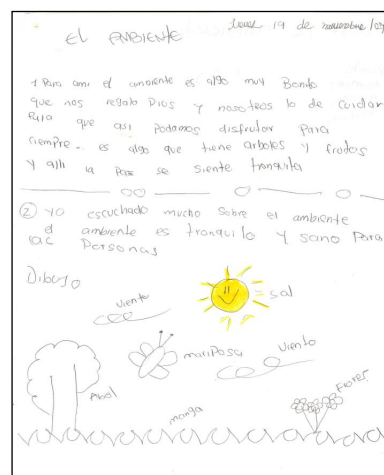 EL AMBIENTE
19 de noviembre/09
1 Para ami el ambiente es algo muy Bonito
que nos regalo Dios y nosotros lo de cuidar
Para que asi Podamos disfrutar Para
siempre.. es algo que tiene arboles y frutas
y alli la Paz se siente tranquila
② yo escuchado mucho sobre el ambiente
el ambiente es tranquilo y sano Para
las Personas
Dibujo
viento
sol
mariposa
viento
Arbol
manga
Flores